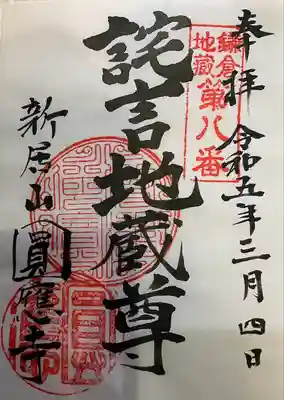 奉拝 令和五年三月四日
鎌倉
地蔵第八番
詫言地蔵尊
新居山圓應寺